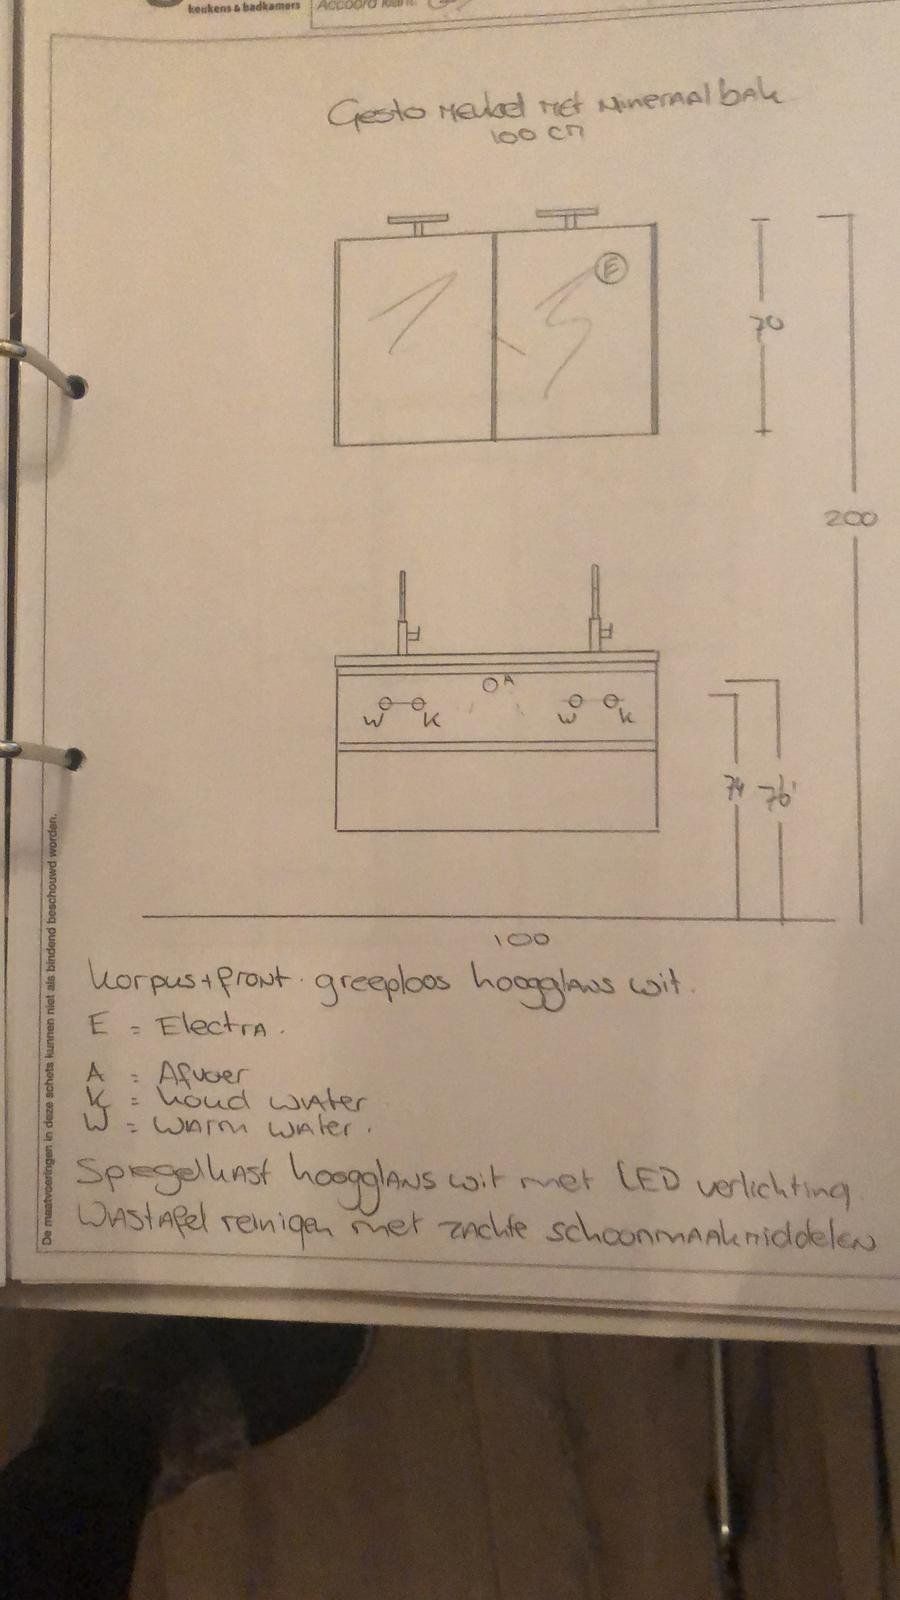 keukens & badkamers
Accoord klant:
Gesto Meubel Met Mineraal bak
100 cm
E
70
200
A
W K W K
74 76
100
korpus + front. greeploos hoogglans wit.
E = Electra.
A = Afvoer
K = koud water
W = warm water.
Spiegelkast hoogglans wit met LED verlichting
Wastafel reinigen met zachte schoonmaakmiddelen
De maatvoeringen in deze schets kunnen niet als bindend beschouwd worden.